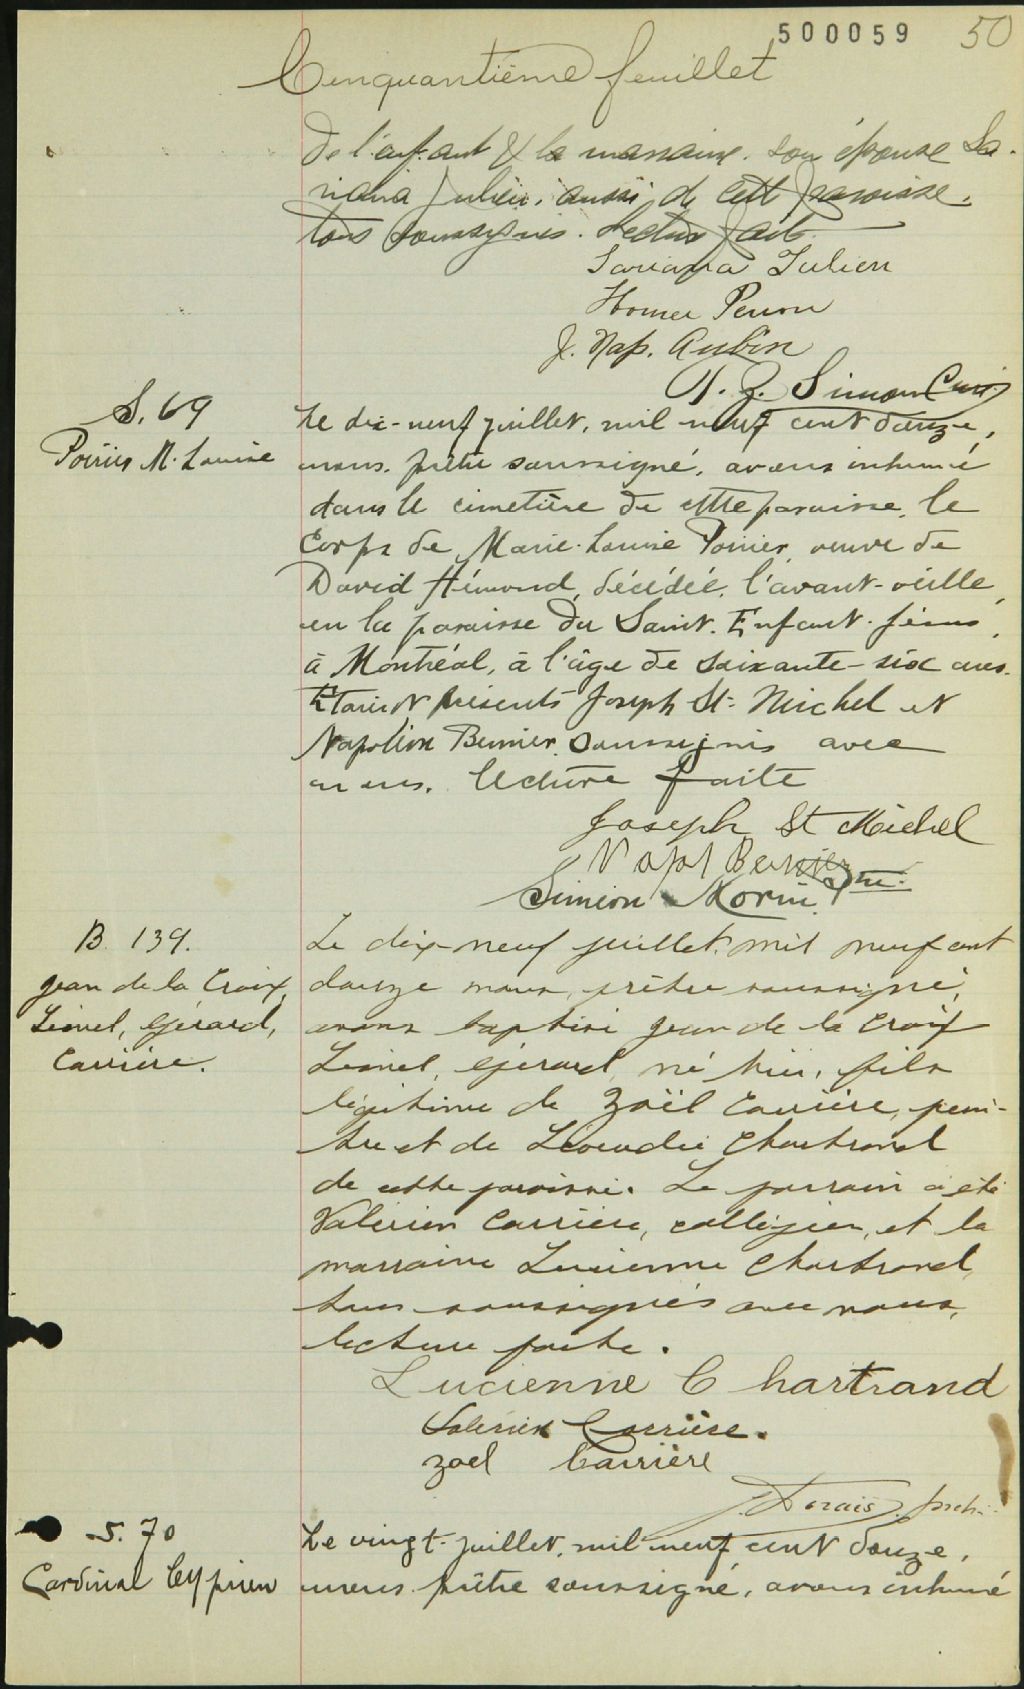 500059 50
Cinquantième feuillet
de l'enfant & la marraine. son épouse Sa-
riana Julien, aussi de cette paroisse.
tous soussignés. Lecture faite
Sariana Julien
Homer Perron
J. Nap. Aubin
Simon Curé
S. 69
Poirier M. Louise
Le dix-neuf juillet, mil neuf cent douze,
nous, prêtre soussigné, avons inhumé
dans le cimetière de cette paroisse, le
Corps de Marie-Louise Poirier, veuve de
David Hémond, décédée, l'avant-veille,
en la paroisse du Saint-Enfant-Jésus,
à Montréal, à l'âge de soixante-six ans.
Etaient présents Joseph St-Michel et
Napoléon Bernier, soussignés avec
nous. lecture faite
Joseph St Michel
Napol Bernier
Siméon Morin, Ptre.
B. 139.
Jean de la Croix,
Lionel, Gérard,
Carrière.
Le dix-neuf juillet, mil neuf cent
douze nous, prêtre soussigné,
avons baptisé Jean de la Croix
Lionel, Gérard, né hier, fils
légitime de Zoël Carrière, pein-
tre et de Léocadie Chartrand
de cette paroisse. Le parrain a été
Valérien Carrière, collégien, et la
marraine Lucienne Chartrand,
tous soussignés avec nous,
lecture faite.
Lucienne Chartrand
Valérien Carrière.
Zoel Carrière
J. Dorais, ptre.
S. 70
Cardinal Cyprien
Le vingt juillet, mil neuf cent douze,
nous prêtre soussigné, avons inhumé